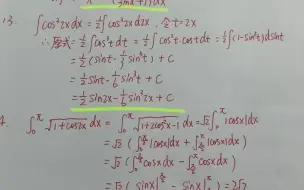 13. ∫cos³2xdx = ½∫cos³2xd2x . 令t=2x
∴原式 = ½∫cos³tdt = ½∫cos²t·costdt = ½∫(1-sin²t)dsint
= ½(sint - ⅓sin³t) + C
= ½sint - ⅙sin³t + C
= ½sin2x - ⅙sin³2x + C
∫₀^π √(1+cos2x) dx = ∫₀^π √(1+2cos²x-1) dx = √2∫₀^π |cosx|dx
= √2(∫₀^(π/2) |cosx|dx + ∫_(π/2)^π |cosx|dx)
= √2(∫₀^(π/2) cosxdx - ∫_(π/2)^π cosxdx)